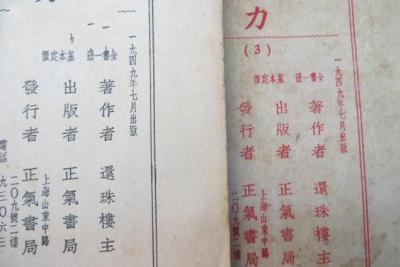 力
(3)
一九四九年七月出版
全書一冊 基本定價
著作者 還珠樓主
出版者 正氣書局
發行者 正氣書局
上海山東中路
二〇九號二樓
一九四九年七月出版
全書一冊 基本定價
著作者 還珠樓主
出版者 正氣書局
發行者 正氣書局
上海山東中路
二〇九號二樓
電話 九三〇六三